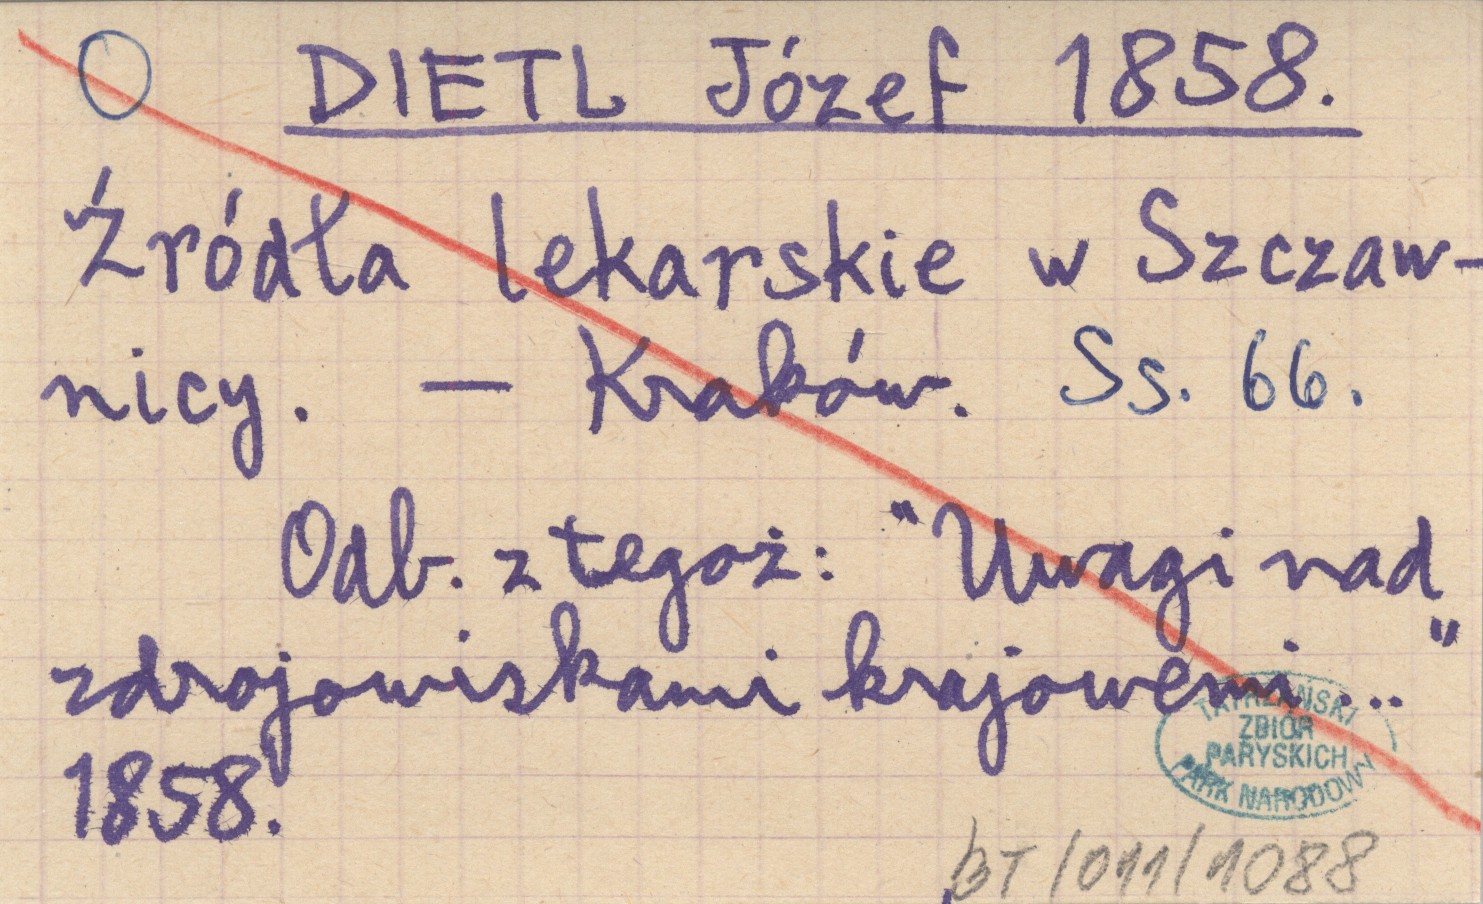 O DIETL Józef 1858.
Źródła lekarskie w Szczaw-
nicy. — Kraków. Ss. 66.
Odb. z tegoż: "Uwagi nad
zdrojowiskami krajowemi..."
1858.
TATRZAŃSKI
ZBIÓR
PARYSKICH
PARK NARODOWY
BT/011/1088